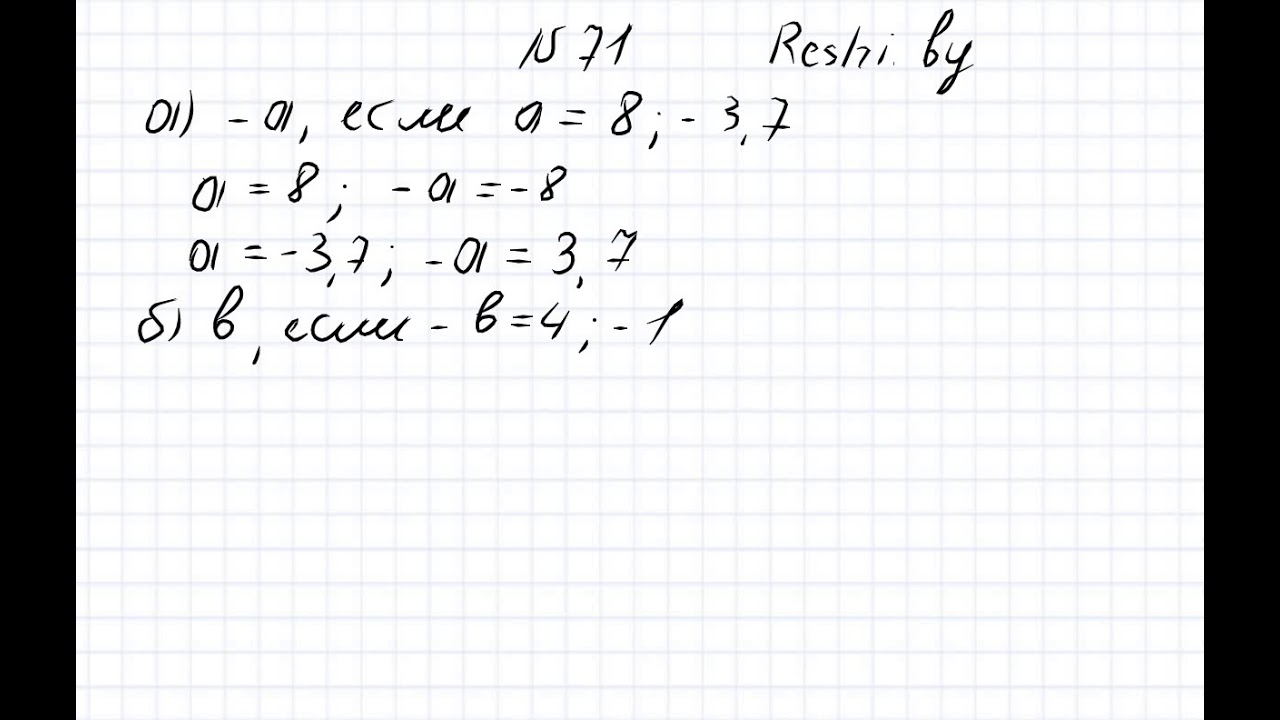 № 71 Reshi.by
а) - а, если а = 8; - 3,7
а = 8; - а = - 8
а = - 3,7; - а = 3,7
б) в, если - в = 4; - 1